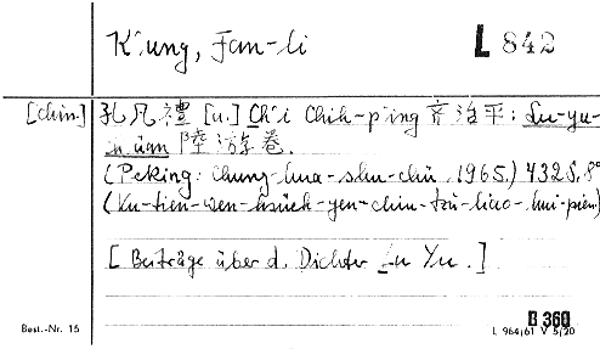 K'ung, Fan-li
L 842
[chin.] 孔凡禮 [u.] Ch'i Chih-p'ing 齐治平: Lu-yu-
küan 陸游卷.
(Peking: Chung-hua-shu-chü 1965.) 432 S. 8°
(Ku-tien-wen-hsüeh-yen-chiu-tzŭ-liao-hui-pien)
[Beiträge über d. Dichter Lu Yu.]
B 360
Best.-Nr. 15
L 964/61 V 5/20